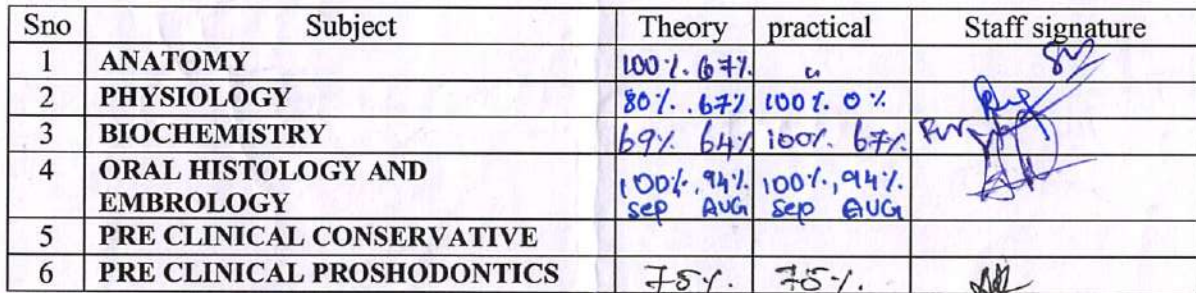 Sno Subject Theory practical Staff signature
1 ANATOMY 100%. 67%. "
2 PHYSIOLOGY 80%. 67% 100%. 0%
3 BIOCHEMISTRY 69%. 64% 100%. 67%
4 ORAL HISTOLOGY AND 100%, 94%. 100%, 94%.
EMBROLOGY sep AUG sep AUG
5 PRE CLINICAL CONSERVATIVE
6 PRE CLINICAL PROSHODONTICS 75%. 75%.